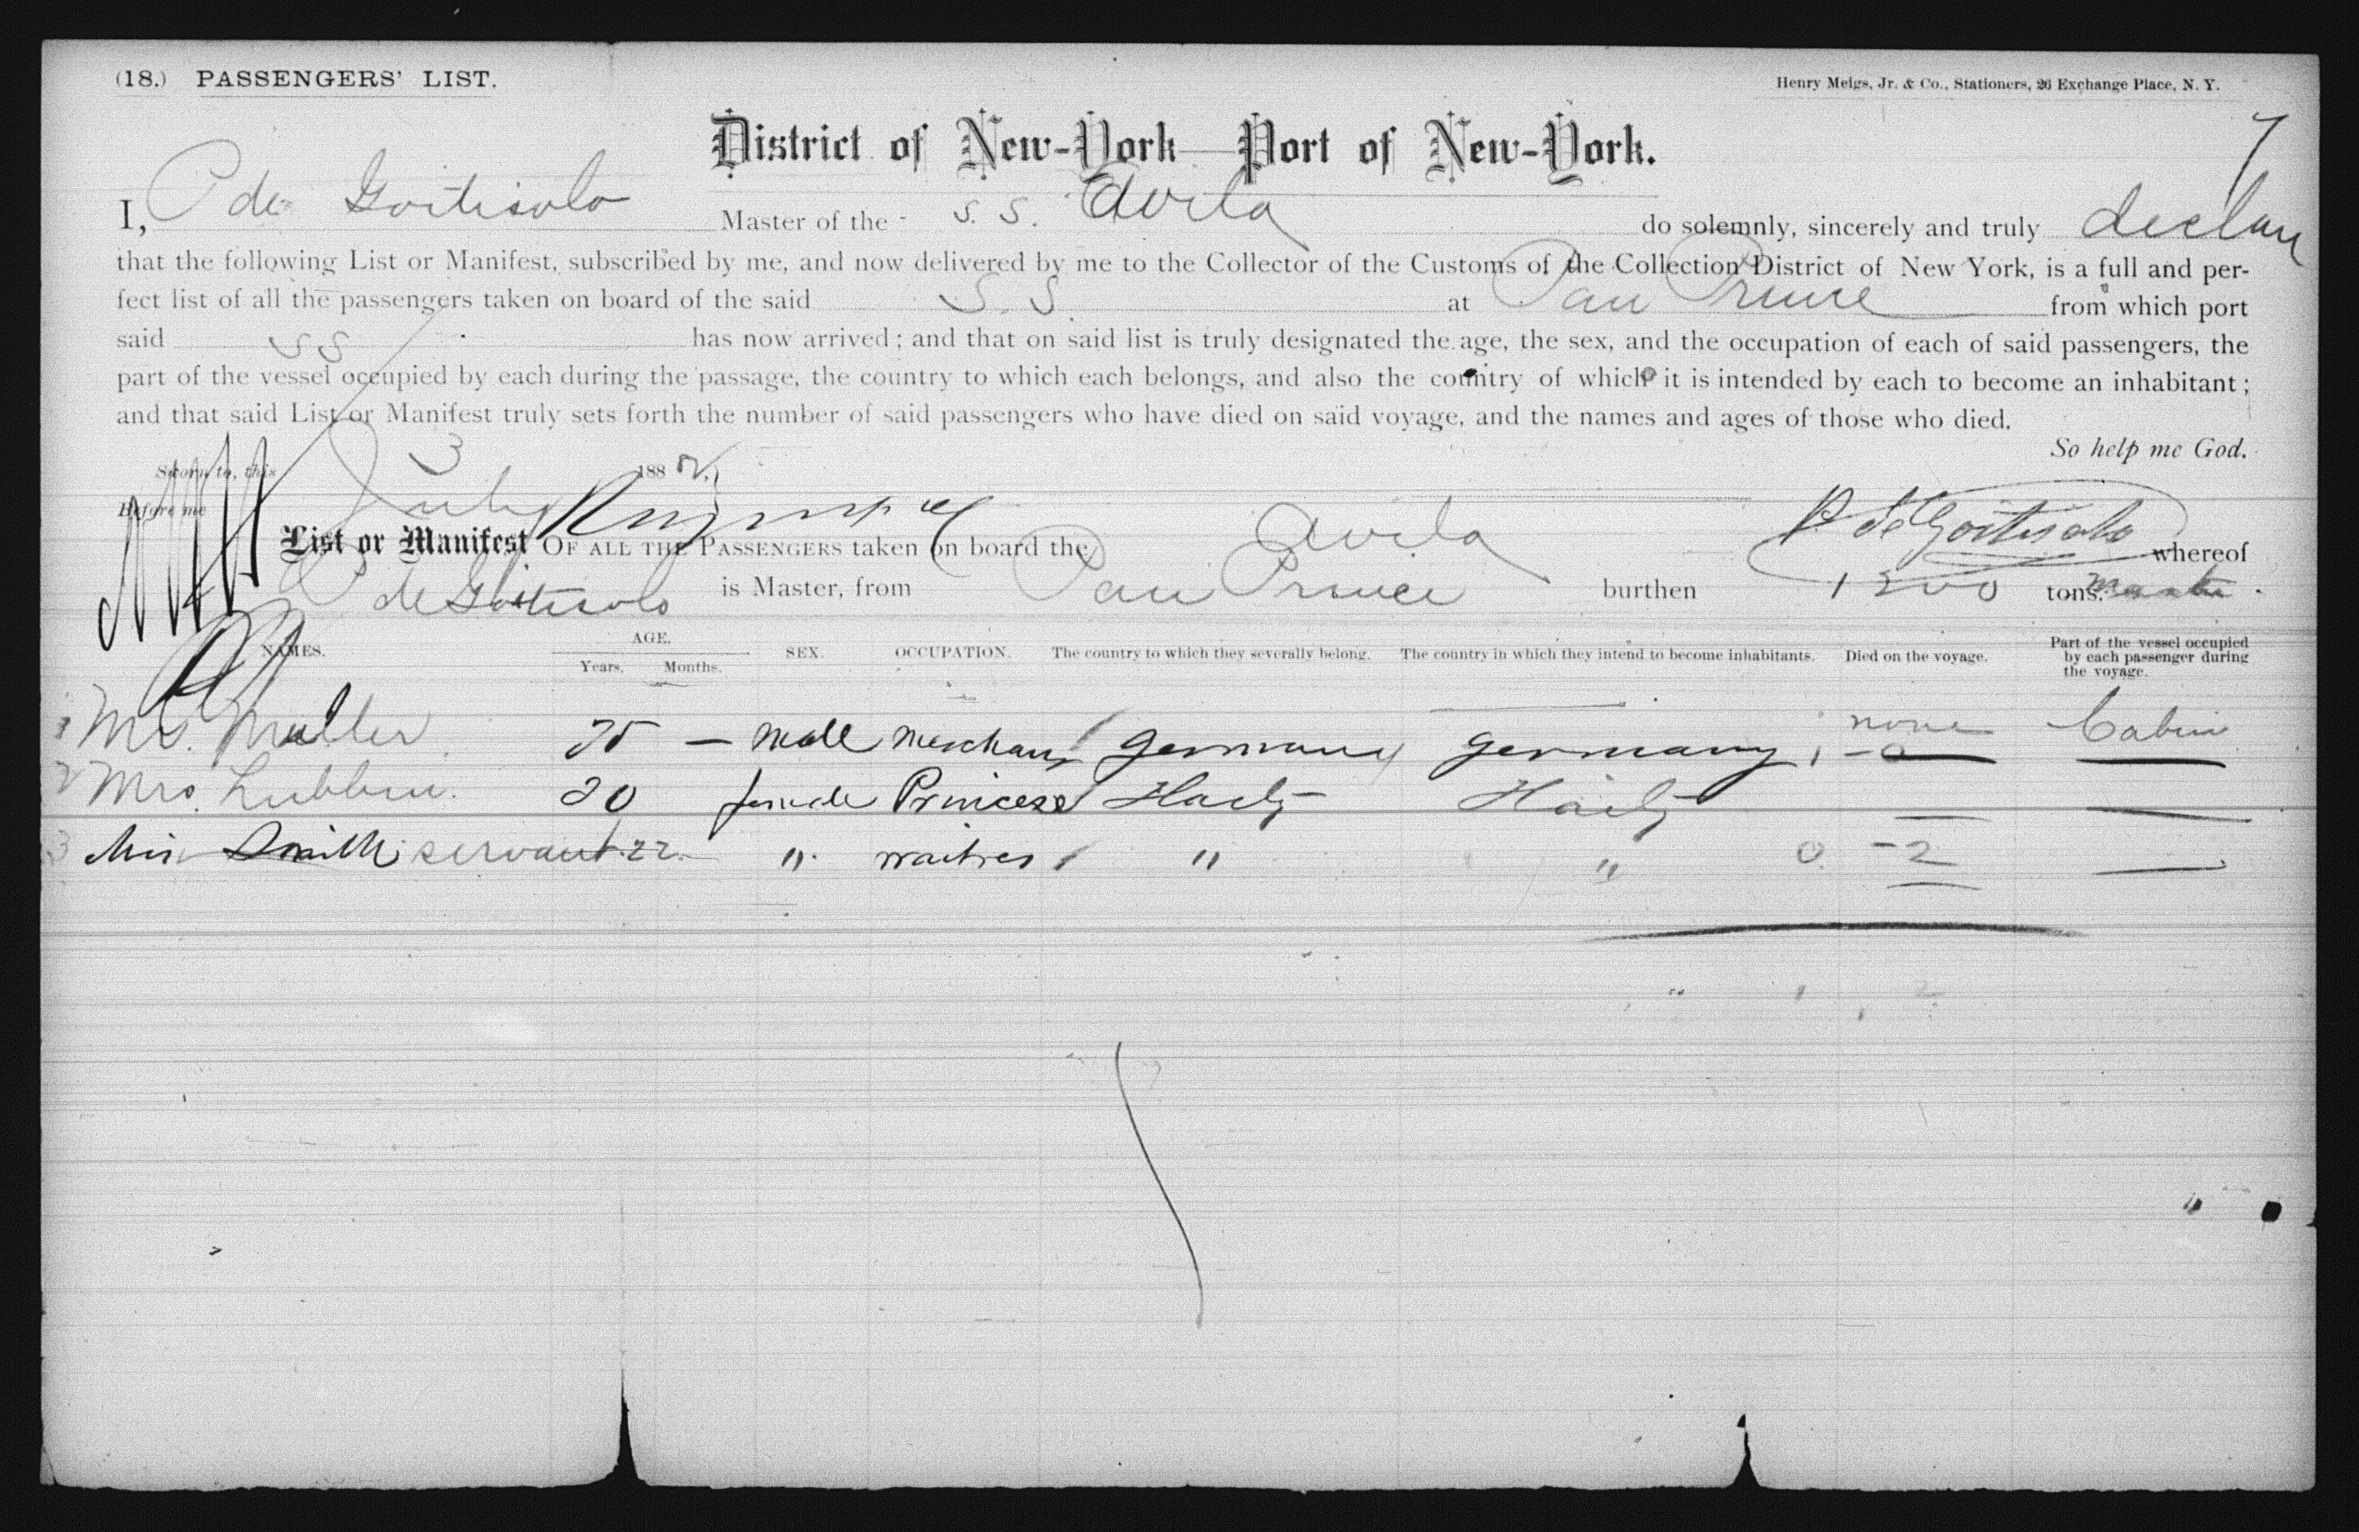 (18.) PASSENGERS' LIST.
Henry Meigs, Jr. & Co., Stationers, 26 Exchange Place, N. Y.
7
District of New-York—Port of New-York.
I, P de Goitisolo Master of the S. S. Avila do solemnly, sincerely and truly declare
that the following List or Manifest, subscribed by me, and now delivered by me to the Collector of the Customs of the Collection District of New York, is a full and per-
fect list of all the passengers taken on board of the said S. S. at Pau Prince from which port
said SS has now arrived; and that on said list is truly designated the age, the sex, and the occupation of each of said passengers, the
part of the vessel occupied by each during the passage, the country to which each belongs, and also the country of which it is intended by each to become an inhabitant;
and that said List or Manifest truly sets forth the number of said passengers who have died on said voyage, and the names and ages of those who died.
So help me God.
Sworn to, this 3 July 188
Before me
P de Goitisolo
List or Manifest OF ALL THE PASSENGERS taken on board the Avila whereof
P de Goitisolo is Master, from Pau Prince burthen 1200 tons.
NAMES. AGE. Years. Months. SEX. OCCUPATION. The country to which they severally belong. The country in which they intend to become inhabitants. Died on the voyage. Part of the vessel occupied by each passenger during the voyage.
1 Mr. Muller male Merchant Germany Germany none Cabin
2 Mrs. Lubbin 20 female Princess Haity Haity
3 Miss Smith servant 22 " waitres " " 0 - 2